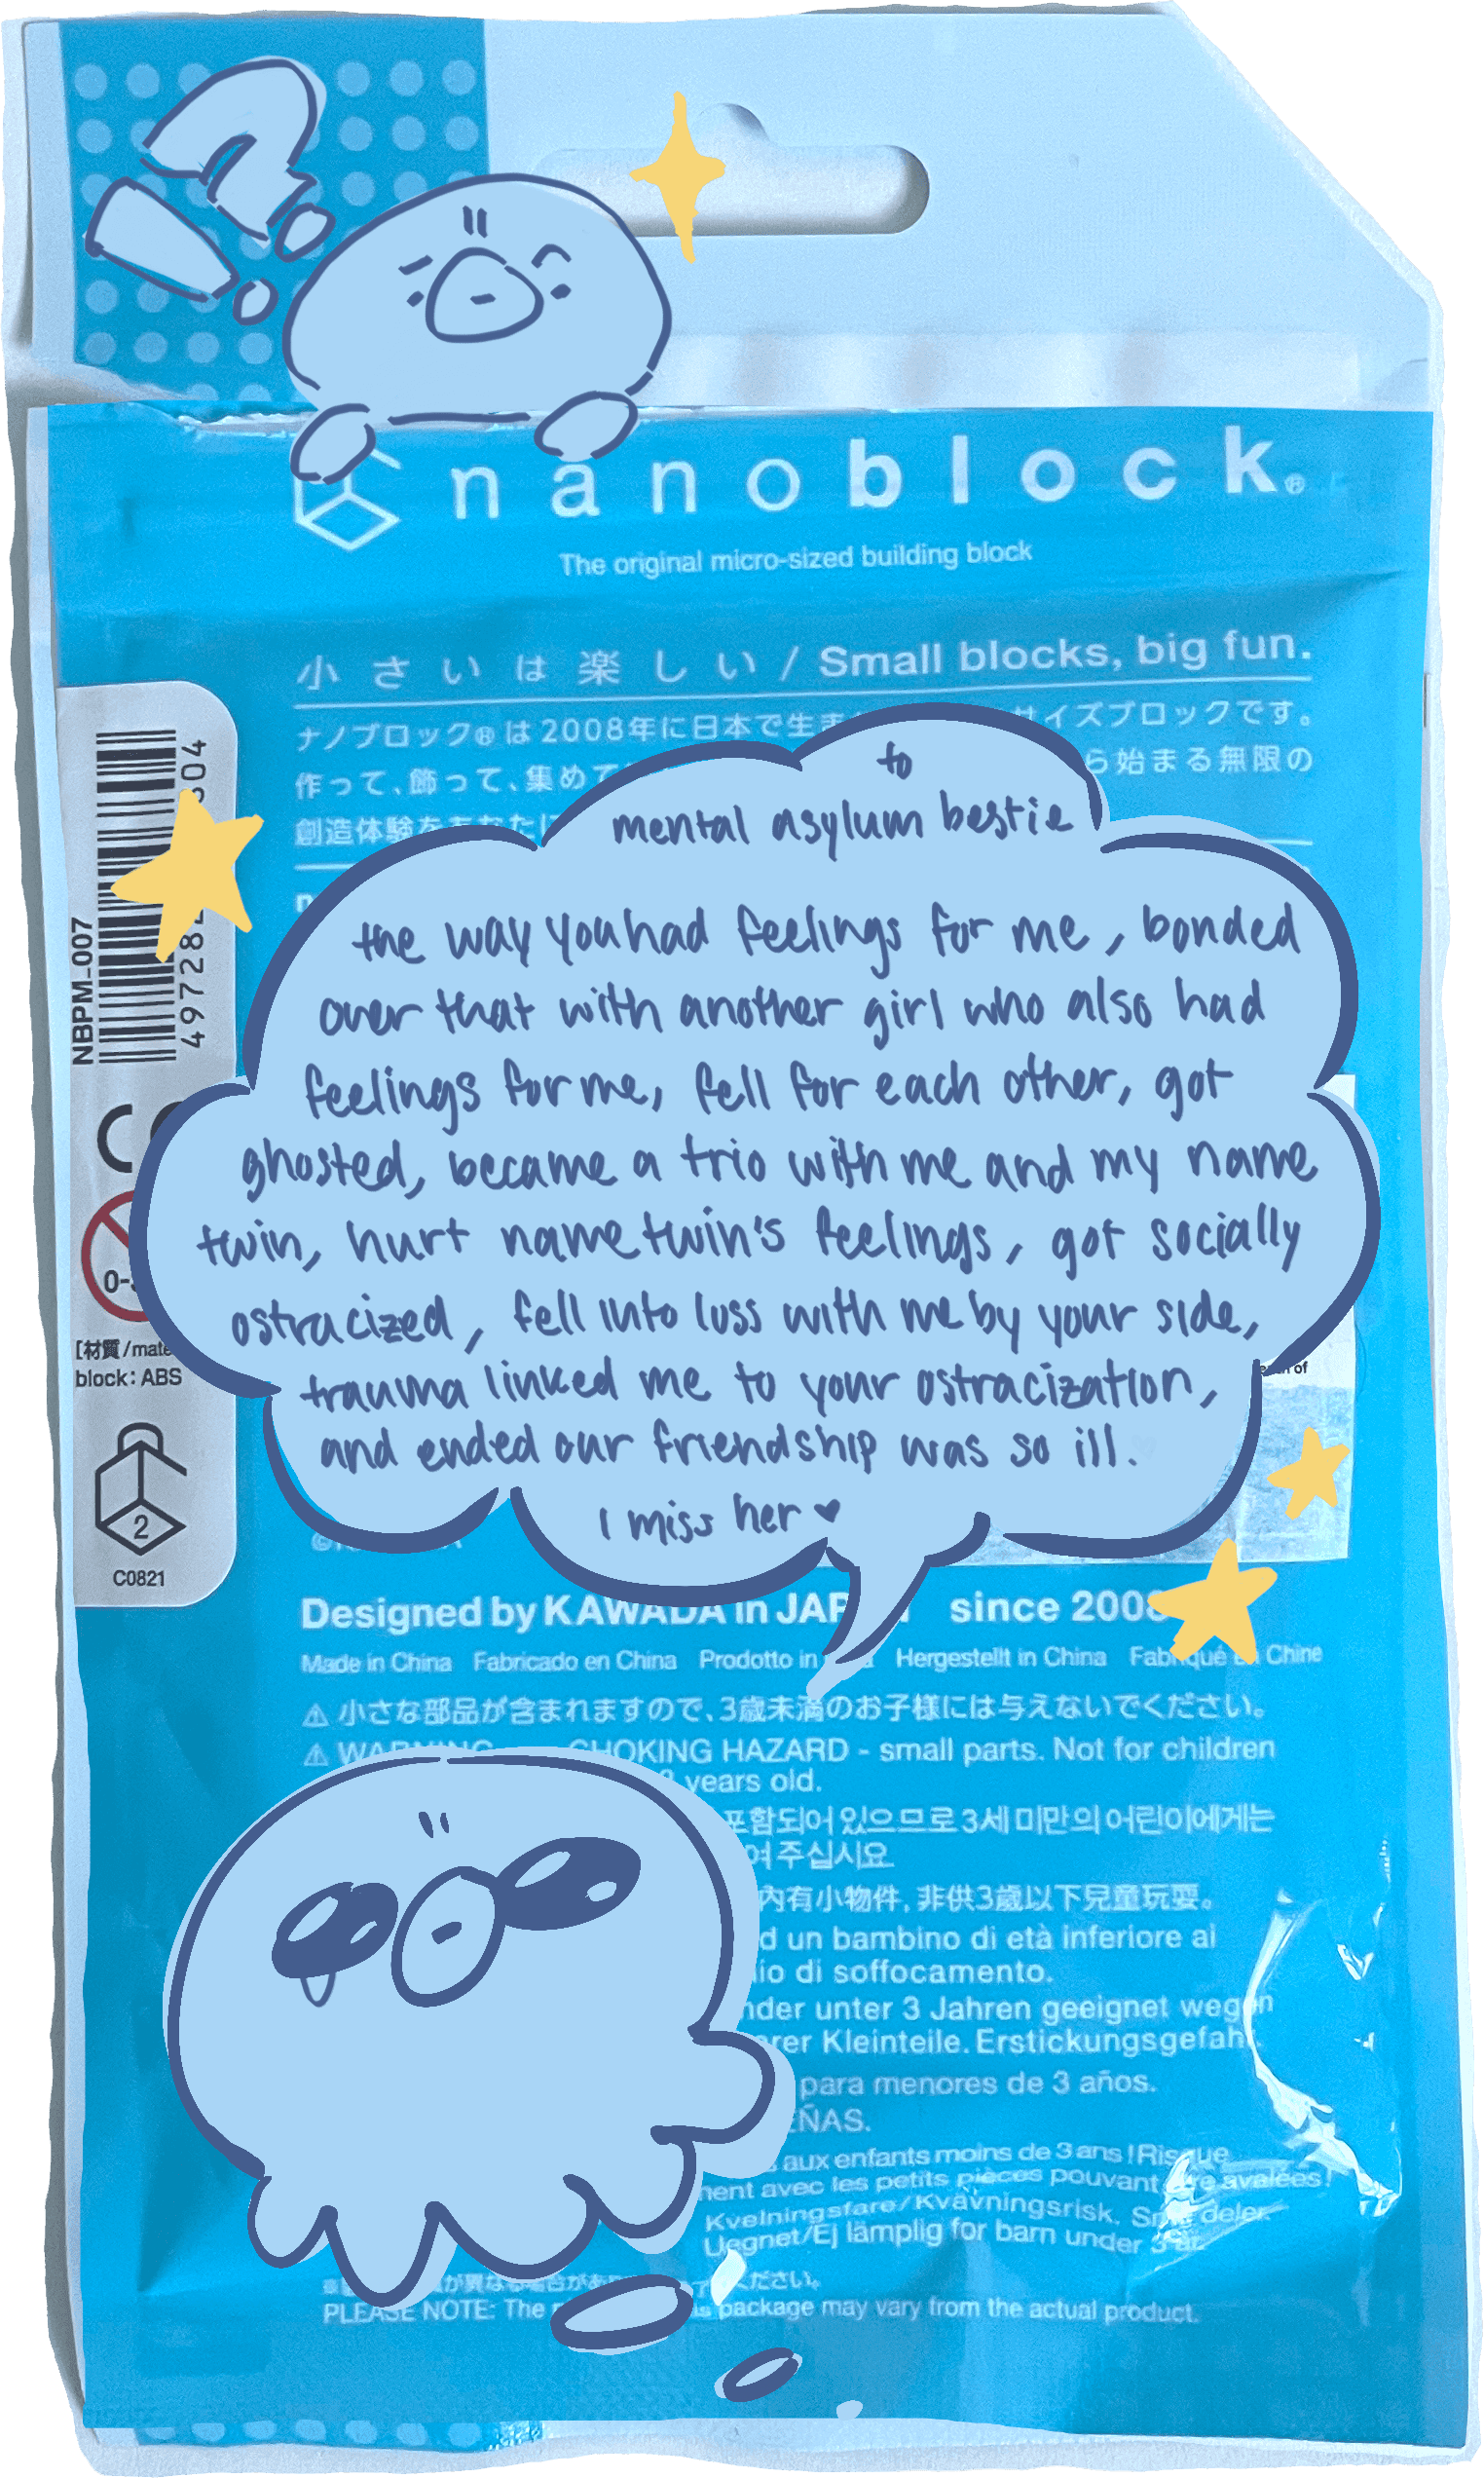 nanoblock®
The original micro-sized building block
小さいは楽しい / Small blocks, big fun.
ナノブロック®は2008年に日本で生ま
サイズブロックです。
作って、飾って、集めて
ら始まる無限の
創造体験をあなたに
to
mental asylum bestie
the way you had feelings for me, bonded
over that with another girl who also had
feelings for me, fell for each other, got
ghosted, became a trio with me and my name
twin, hurt name twin's feelings, got socially
ostracized, fell into loss with me by your side,
trauma linked me to your ostracization,
and ended our friendship was so ill.
I miss her ♥
NBPM_007
497282
604
CE
0-3
[材質/mate
block: ABS
2
C0821
Designed by KAWADA in JAPAN since 2008
Made in China Fabricado en China Prodotto in Hergestellt in China Fabriqué en Chine
⚠ 小さな部品が含まれますので、3歳未満のお子様には与えないでください。
⚠ WARNING CHOKING HAZARD - small parts. Not for children
3 years old.
포함되어 있으므로 3세 미만의 어린이에게는
여 주십시요
內有小物件, 非供3歲以下兒童玩耍。
d un bambino di età inferiore ai
io di soffocamento.
nder unter 3 Jahren geeignet wegen
erer Kleinteile. Erstickungsgefahr.
para menores de 3 años.
EÑAS.
s aux enfants moins de 3 ans ! Risque
ment avec les petits pièces pouvant être avalées!
Kvelningsfare/Kvävningsrisk. Små deler.
Uegnet/Ej lämplig for barn under 3 år.
が異なる場合があ
ください。
PLEASE NOTE: The
package may vary from the actual product.